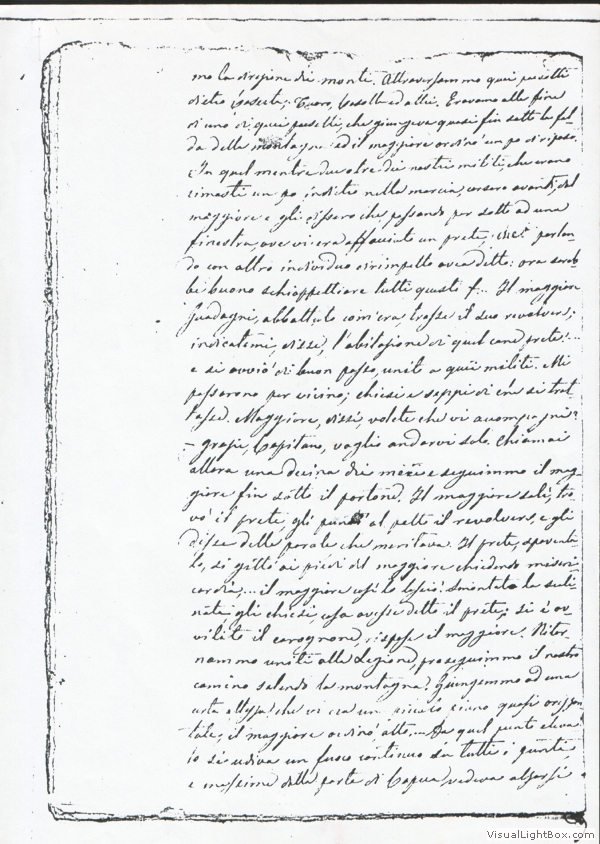 mo la direzione dei monti. Attraversammo quei paesetti
dietro Caserta: Tuoro, Casolla ed altri. Eravamo alla fine
di uno di quei paeselli, che giungeva quasi fin sotto la fal-
da della montagna ed il maggiore ordinò un po di riposo.
In quel mentre due o tre dei nostri militi, che erano
rimasti un po indietro nella marcia, corsero avanti, dal
maggiore e gli dissero che, passando per sotto ad una
finestra, ove vi era affacciato un prete, che parlan-
do con altro individuo dirimpetto avea detto: ora sareb-
be buono schioppettiare tutti questi f... Il maggiore
Guadagni, abbattuto com'era, trasse il suo revolvers;
indicatemi, disse, l'abitazione di quel cane prete!...
e si avviò di buon passo, unito a quei militi. Mi
passarono per vicino; chiesi e seppi di che si trat
tasse. Maggiore, dissi, volete che vi accompagni?
– grazie, Capitano, voglio andarvi solo. Chiamai
allora una decina dei miei e seguimmo il mag-
giore fin sotto il portone. Il maggiore salì, tro-
vò il prete, gli puntò al petto il revolvers, e gli
disse delle parole che meritava. Il prete, spaventa-
to, si gittò ai piedi del maggiore chiedendo miseri-
cordia,... il maggiore così lo lasciò! Smontato la scali-
nata gli chiesi, cosa avesse detto il prete; si è av-
vilito il carognone, rispose il maggiore. Ritor-
nammo uniti alla Legione, proseguimmo il nostro
camino salendo la montagna. Giungemmo ad una
certa altezza che vi era un piccolo piano quasi orizzon
tale, il maggiore ordinò alto... Da quel punto eleva-
to si udiva un fuoco continuo da tutti i punti,
e massime dalla parte di Capua, vedeva alzarsi
VisualLightBox.com